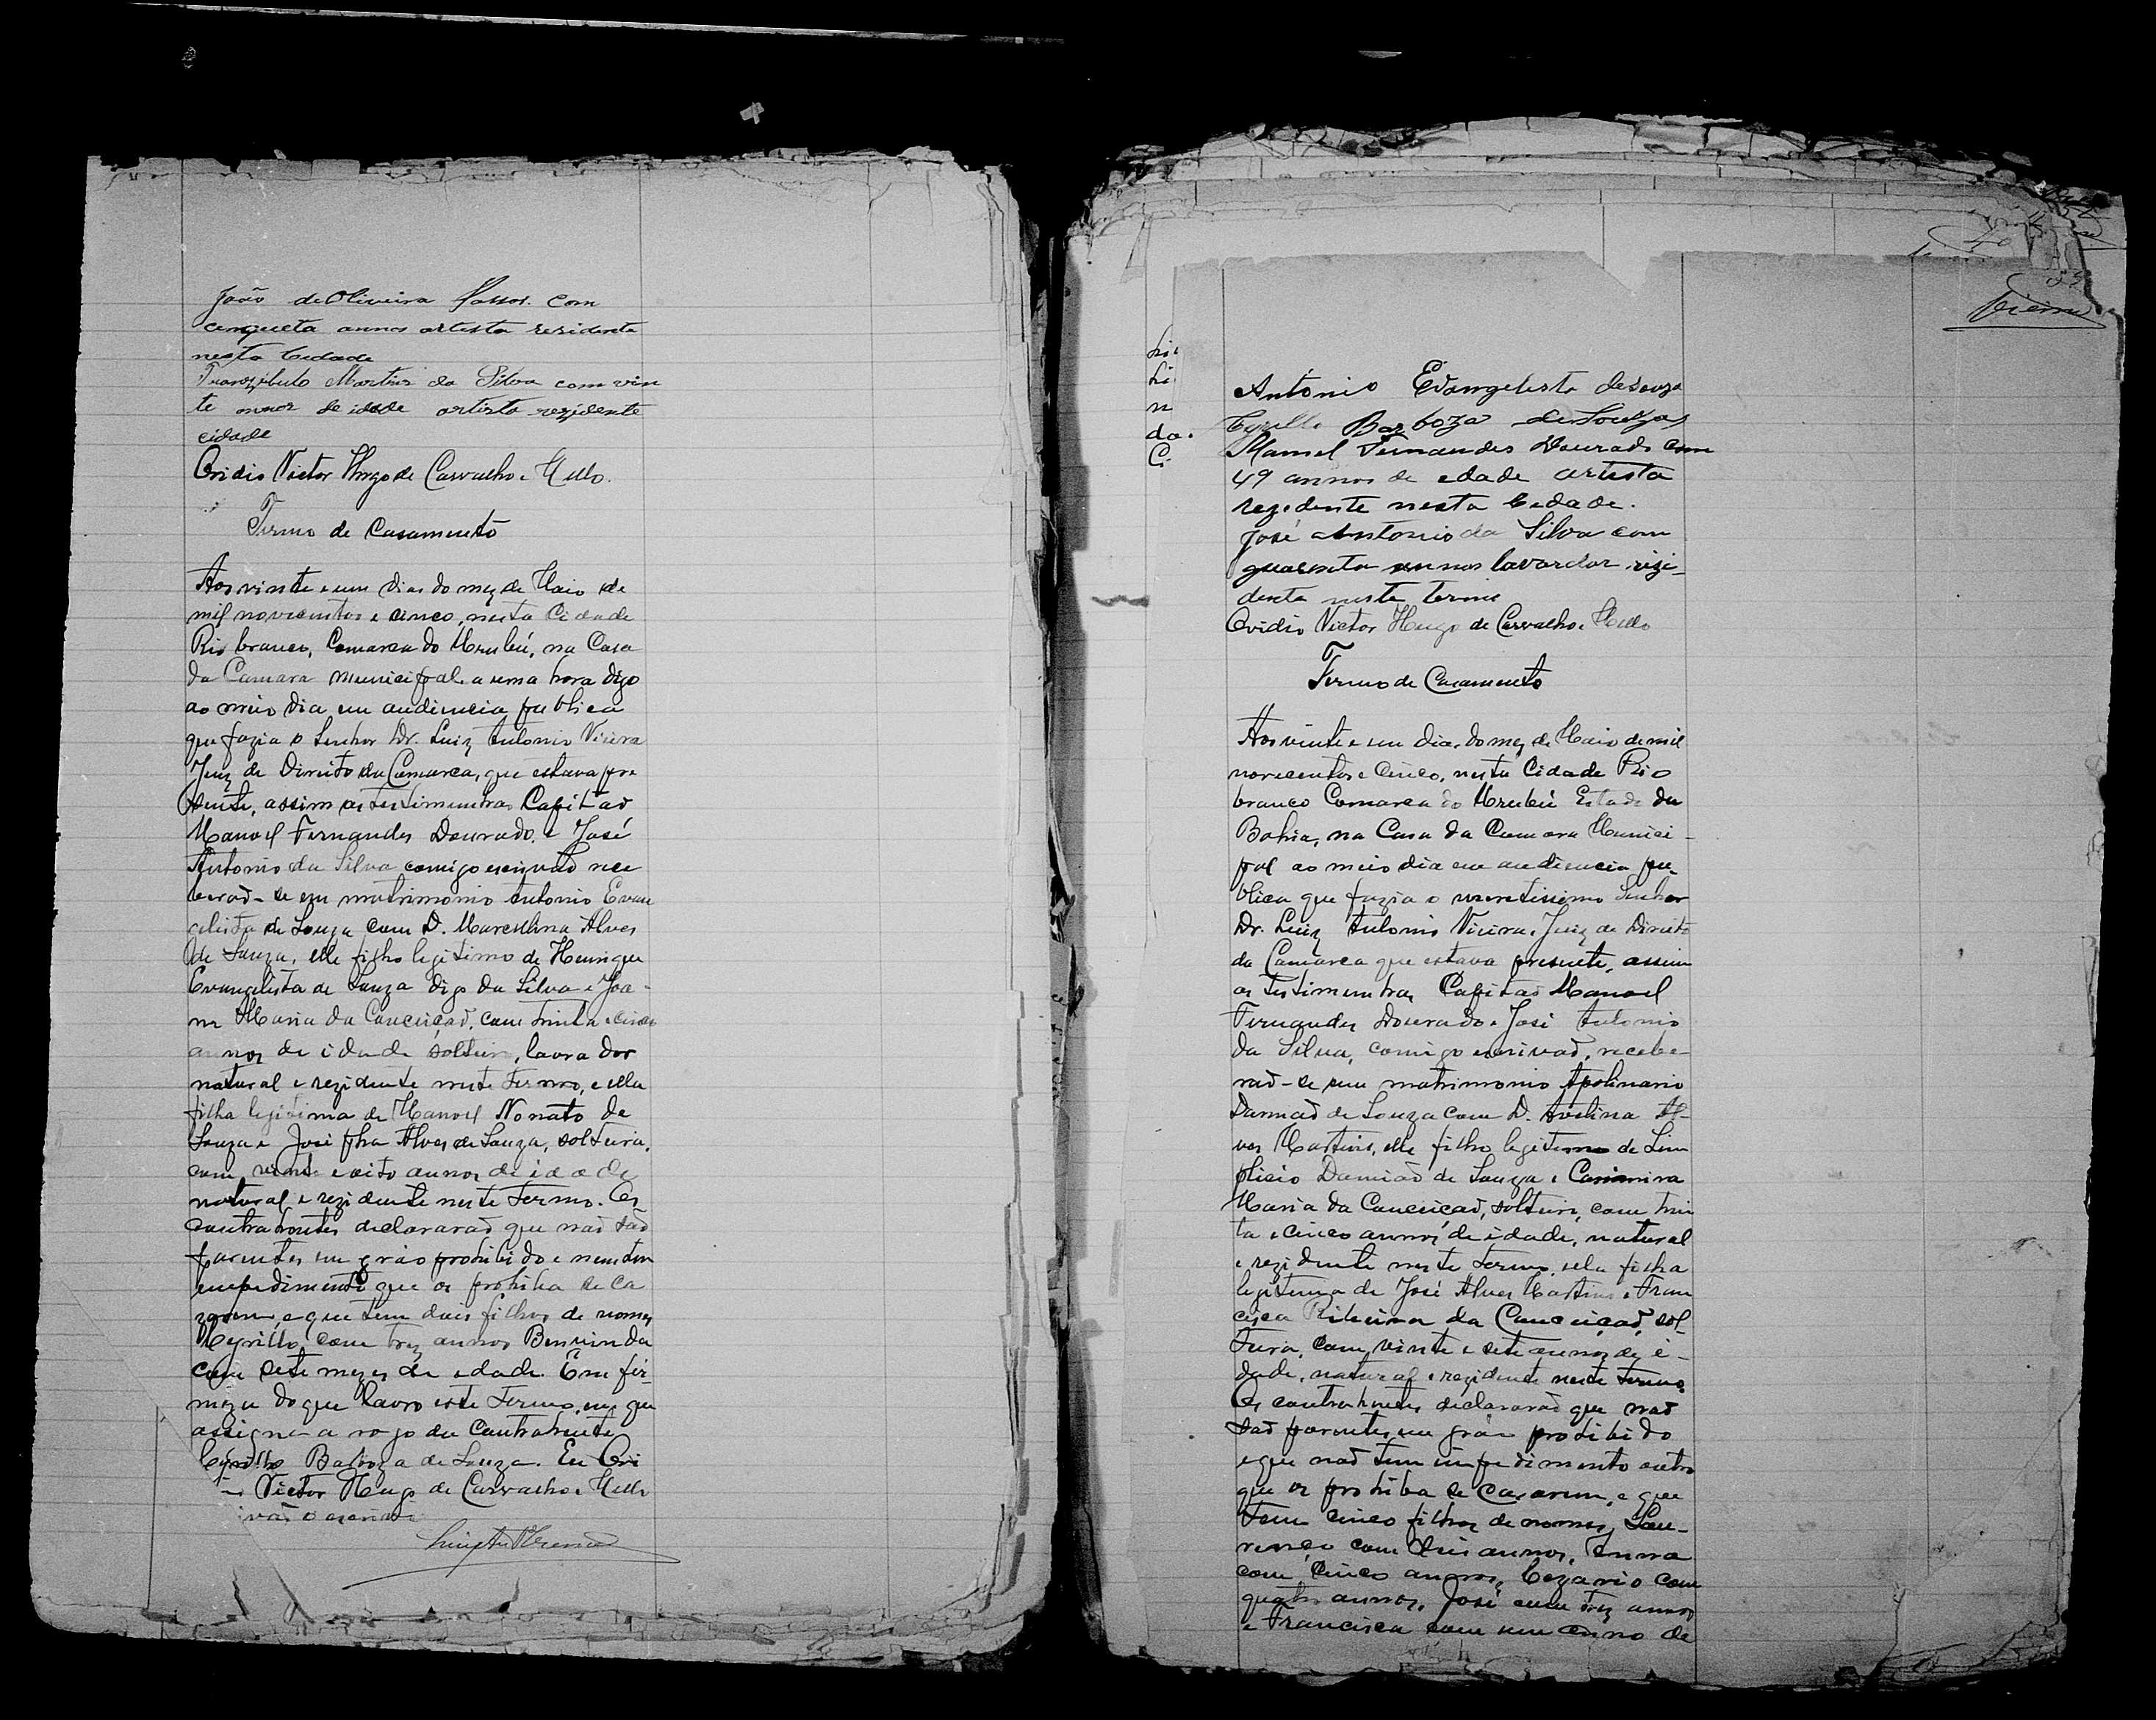 João de Oliveira Passos. com
cinqueta annos artista rezidente
nesta Cidade
Tranzibulo Martins da Silva com vin
te annos de idade artista rezidente
cidade
Ovidio Victor Hugo de Carvalho e Mello.
Termo de Casamento
Aos vinte e um dias do mez de Maio de
mil novecentos e cinco, nesta Cidade
Rio branco, Comarca do Urubú, na Casa
da Camara municipal a uma hora digo
ao meio dia em audiencia publica
que fazia o Senhor Dr. Luiz Antonio Vieira
Juiz de Direito da Comarca, que estava pre
sente, assim as testimunhas Capitaõ
Manoel Fernandes Dourado e José
Antonio da Silva comigo escrivaõ rece
beraõ-se em matrimonio Antonio Evan
gelista de Souza com D. Marcelina Alves
de Souza, elle filho legitimo de Henrique
Evangelista de Souza digo da Silva e Joa-
na Maria da Conceiçaõ, com trinta e cinco
annos de idade solteiro, lavrador
natural e rezidente neste termo, e ella
filha legitima de Manoel Nonato de
Souza e Josepha Alves de Souza, solteira,
com vinte e oito annos de idade
natural e rezidente neste termo. Os
contrahentes declararaõ que naõ saõ
parentes em gráo prohibido e nem tem
impedimento que os prohiba de ca
zarem, e que tem dois filhos de nomes
Cyrillo com trez annos Benvinda
com sete mezes de edade. E em fir-
meza do que lavro este termo, em que
assigna a rogo da Contrahente
Cyrillo Barboza de Souza. Eu Ovi
Victor Hugo de Carvalho e Mello
vão o escrivi
Vieira
Antonio Evangelista de Souza
Cyrillo Barboza de Souza
Manoel Fernandes Dourado com
49 annos de edade artista
rezidente nesta Cedade.
José Antonio da Silva com
quarenta annos lavardor rizi-
dente neste termo
Ovidio Victor Hugo de Carvalho e Mello
Termo de Casamento
Aos vinte e um dias do mez de Maio de mil
novecentos e Cinco, nesta Cidade Rio
branco Comarca do Urubú Estado da
Bahia, na Casa da Camara Munici-
pal ao meio dia em audiencia pu-
blica que fazia o meretissimo Senhor
Dr. Luiz Antonio Vieira, Juiz de Direito
da Comarca que estava presente, assim
as testimunhas Capitaõ Manoel
Fernandes Dourado e José Antonio
da Silva, comigo escrivaõ, recebe-
raõ-se em matrimonio Apolinario
Damiaõ de Souza com D. Avelina Al-
ves Martins, elle filho legitimo de Sim
plicio Damiaõ de Souza e Casimira
Maria da Conceiçaõ, solteiro, com trin
ta e cinco annos de idade, natural
e rezidente neste termo, ella filha
legitima de José Alves Martins e Fran
cisca Ribeiro da Conceiçaõ, sol-
teira, com vinte e sete annos de i-
dade, natural e rezidente neste termo.
Os contrahentes declararaõ que naõ
saõ parentes em gráo prohibido
e que naõ tem impedimento outro
que os prohiba de Casarem, e que
tem cinco filhos de nomes, Lau-
renço com seis annos, Anna
com cinco annos, Cezario com
quatro annos, José com trez annos
e Francisca com um anno de